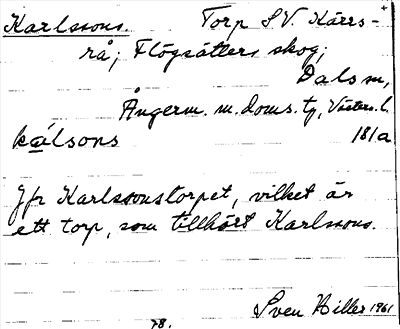 Karlssons. Torp S.V. Kärrs-
rå; Flögsätters skog;
Dals sn,
Ångerm. m. doms. tg, Västern. l.
kálsons 181a
Jfr Karlssonstorpet, vilket är
ett torp, som tillhört Karlssons.
Sven Hiller 1961
78.